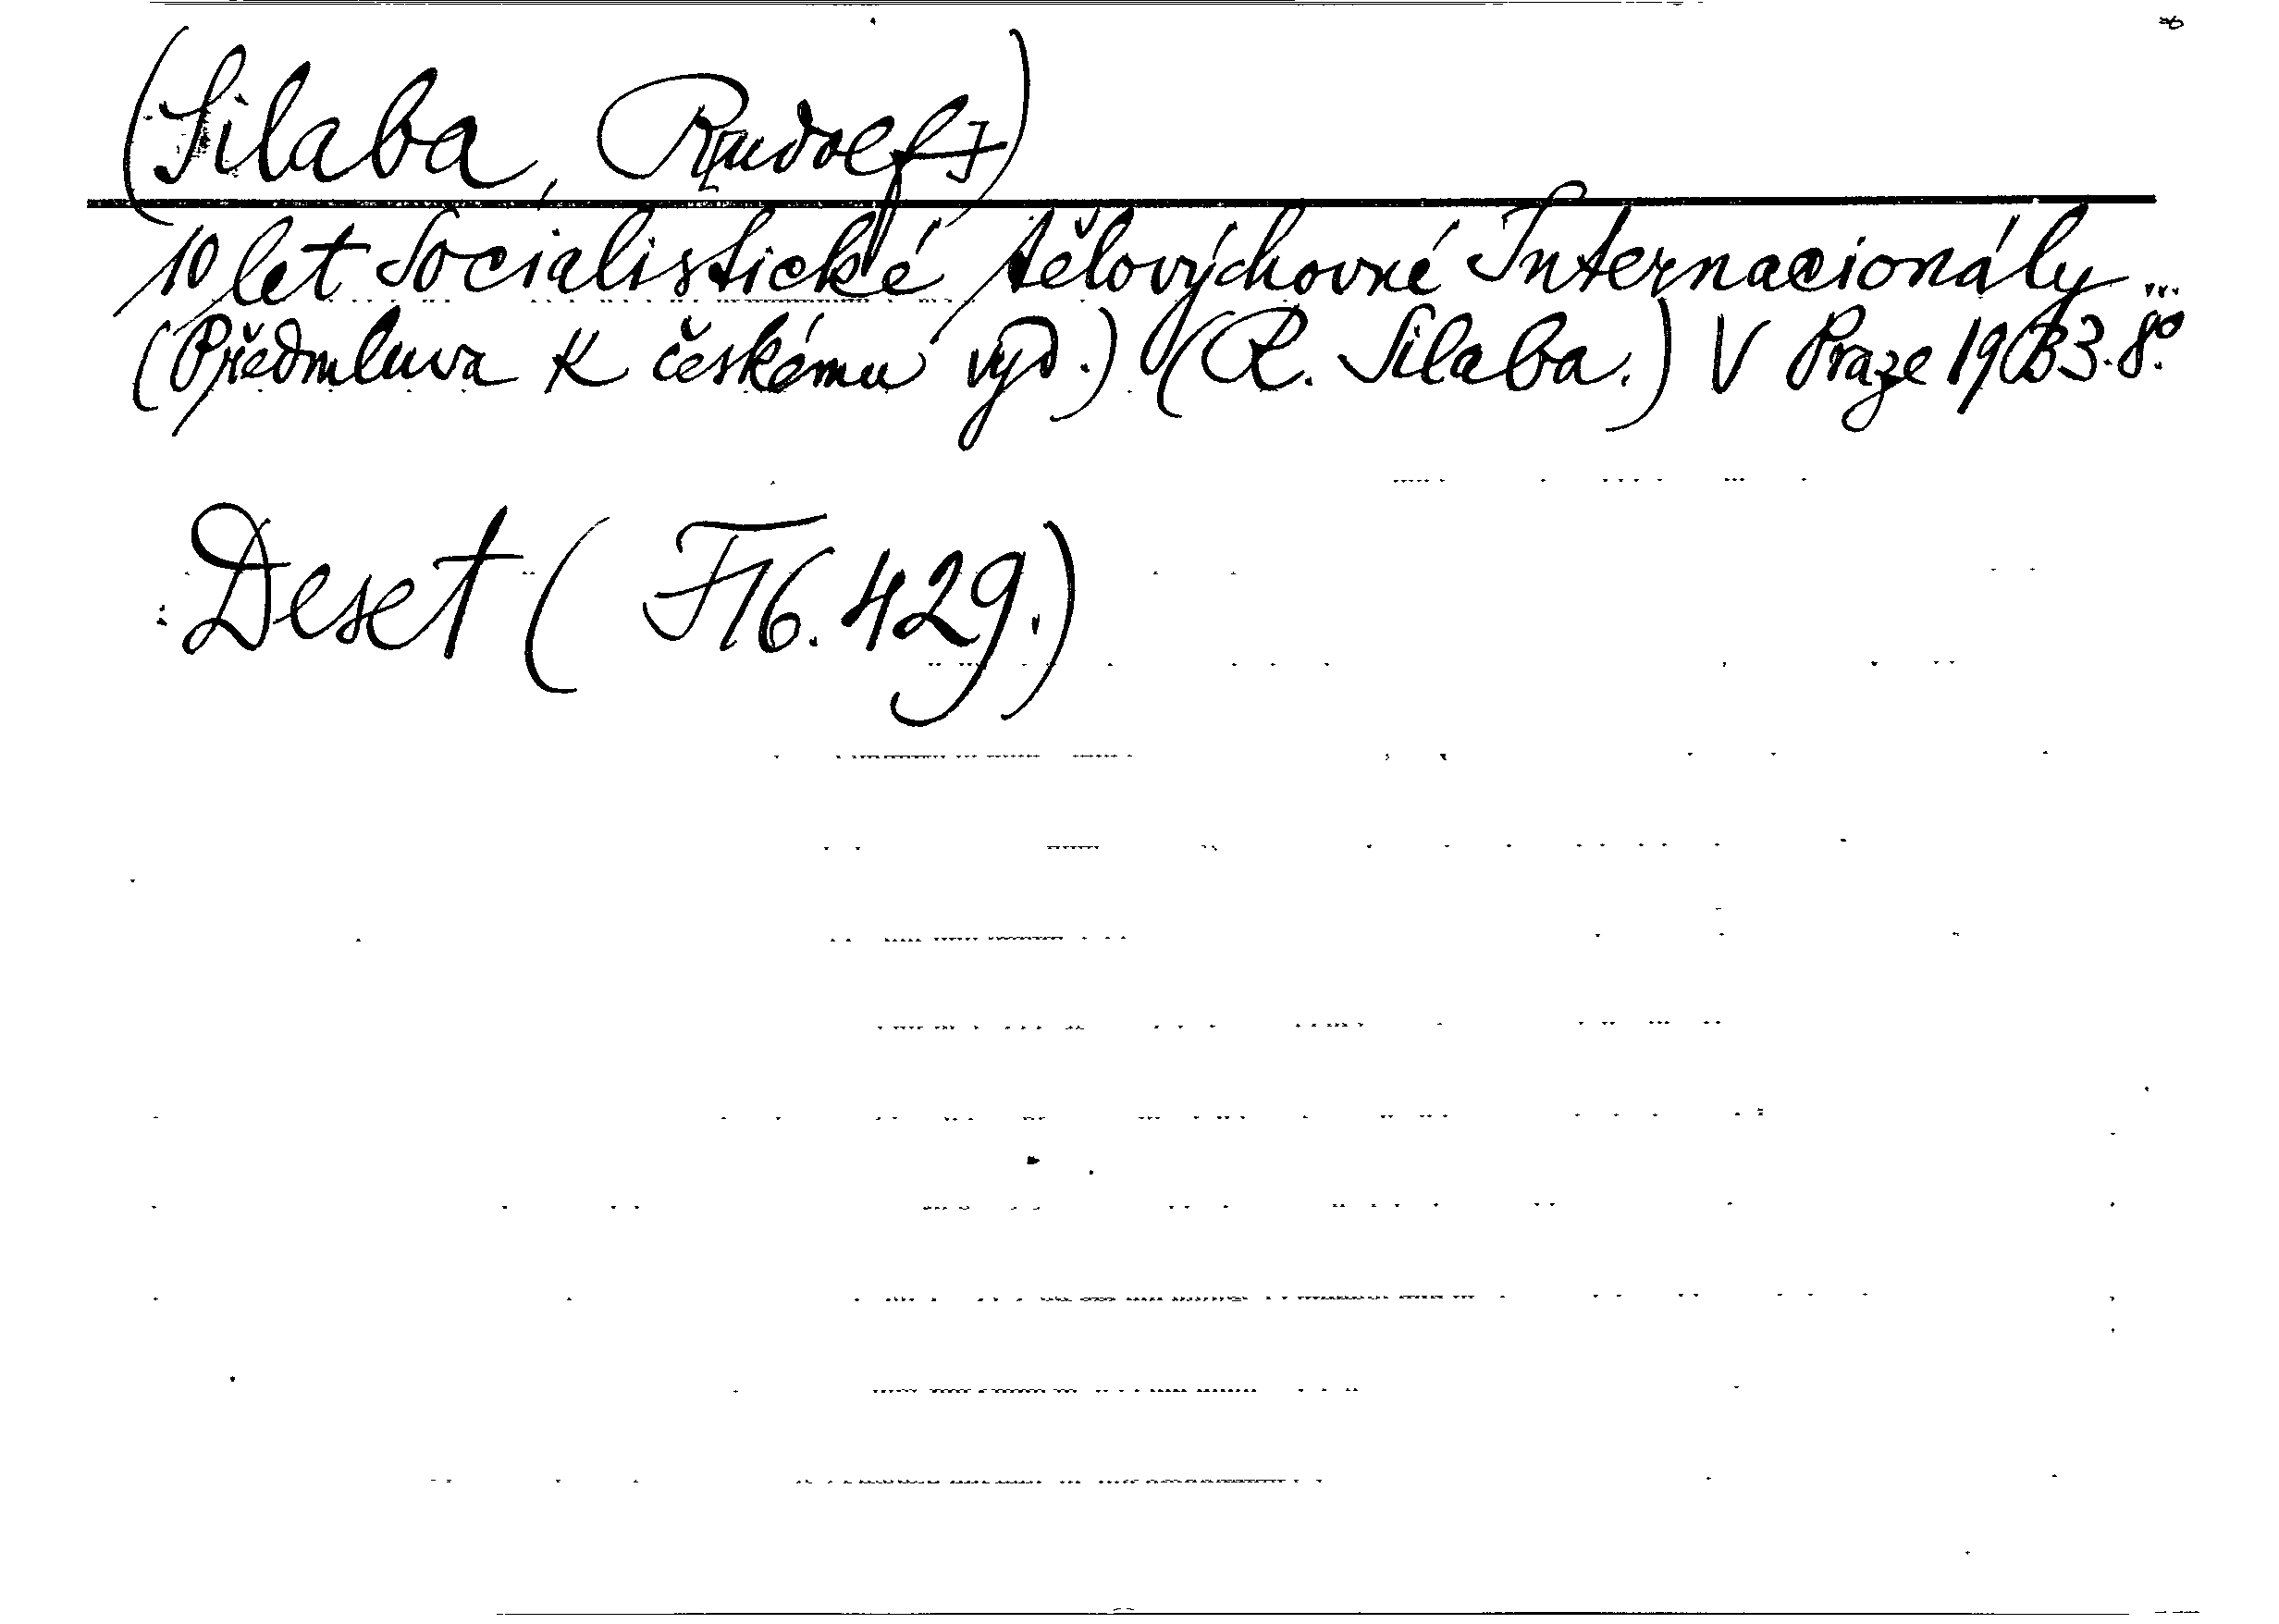 (Silaba, Rudolf)
10 let Socialistické tělovýchovné Internacionály...
(Předmluva k českému vyd.) (R. Silaba.) V Praze 1933. 8°.
Deset (F 16. 429.)